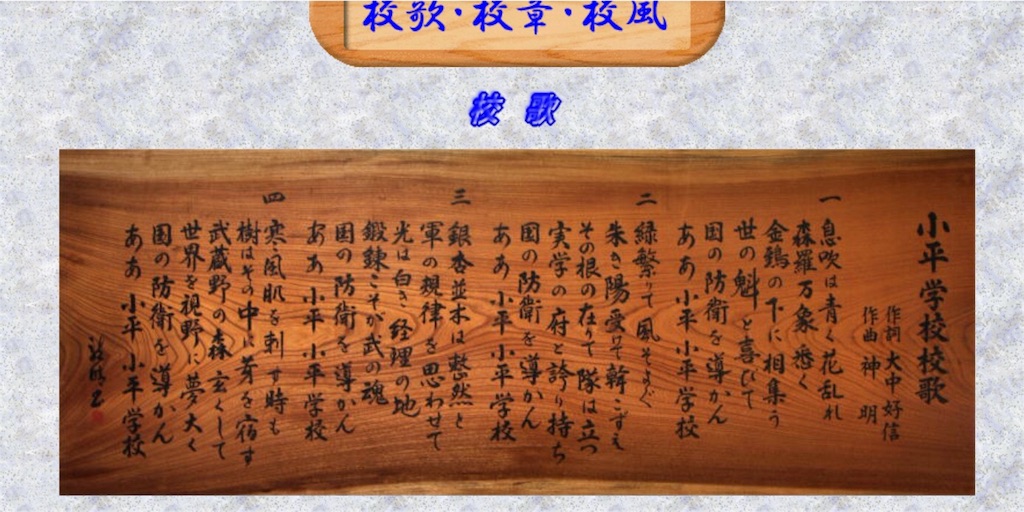 校歌・校章・校風
校歌
小平学校校歌
作詞 大中好信
作曲 神 明
一
息吹は青く花乱れ
森羅万象悉く
金鵄の下に相集う
世の魁と喜びて
国の防衛を導かん
ああ 小平 小平学校
二
緑繁りて風そよぐ
朱き陽受けて幹こずえ
その根の在りて隊は立つ
実学の府と誇り持ち
国の防衛を導かん
ああ 小平 小平学校
三
銀杏並木は整然と
軍の規律を思わせて
光は白き経理の地
鍛錬こそが武の魂
国の防衛を導かん
ああ 小平 小平学校
四
寒風肌を刺す時も
樹はその中に芽を宿す
武蔵野の森玄くして
世界を視野に夢大く
国の防衛を導かん
ああ 小平 小平学校